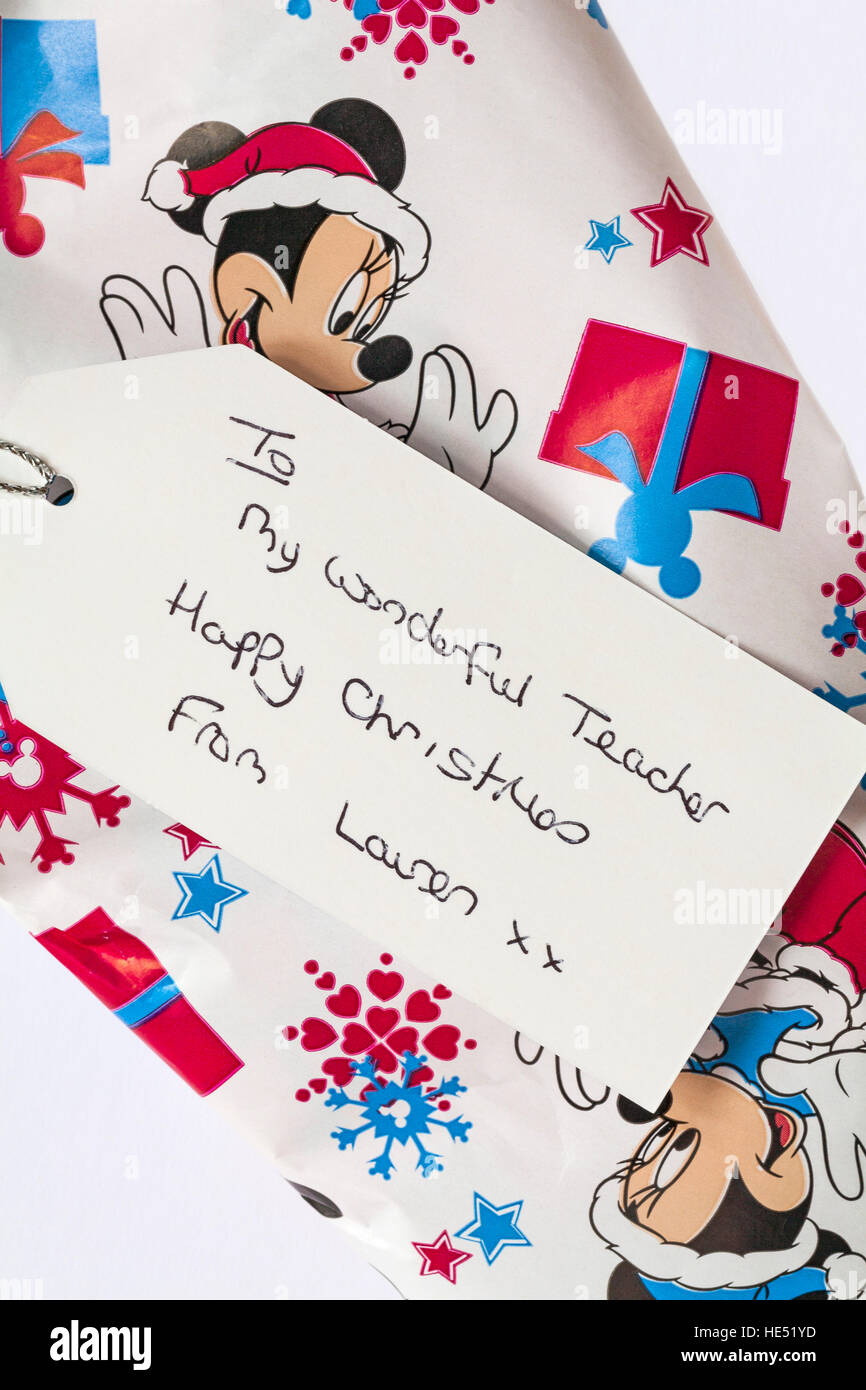 To
My Wonderful Teacher
Happy Christmas
From Lauren xx
alamy
alamy
alamy
a
a
alamy
Image ID: HE51YD
www.alamy.com